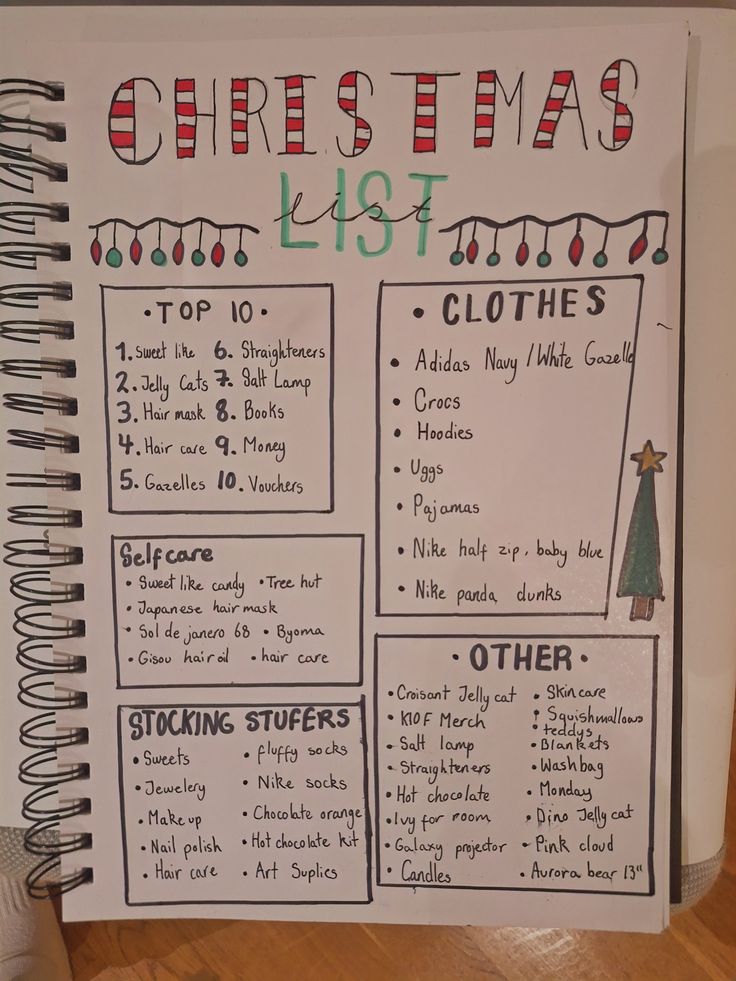 CHRISTMAS
LIST
list
• TOP 10 •
1. Sweet like 6. Straighteners
2. Jelly Cats 7. Salt Lamp
3. Hair mask 8. Books
4. Hair care 9. Money
5. Gazelles 10. Vouchers
• CLOTHES
• Adidas Navy / White Gazelle
• Crocs
• Hoodies
• Uggs
• Pajamas
• Nike half zip, baby blue
• Nike panda dunks
Selfcare
• Sweet like candy • Tree hut
• Japanese hair mask
• Sol de janero 68 • Byoma
• Gisou hair oil • hair care
STOCKING STUFERS
• Sweets • fluffy socks
• Jewelery • Nike socks
• Make up • Chocolate orange
• Nail polish • Hot chocolate kit
• Hair care • Art Suplies
• OTHER •
• Croisant Jelly cat • Skincare
• K10F Merch • Squishmallows
• teddys
• Salt lamp • Blankets
• Straighteners • Wash bag
• Hot chocolate • Monday
• Ivy for room • Dino Jelly cat
• Galaxy projector • Pink cloud
• Candles • Aurora bear 13"